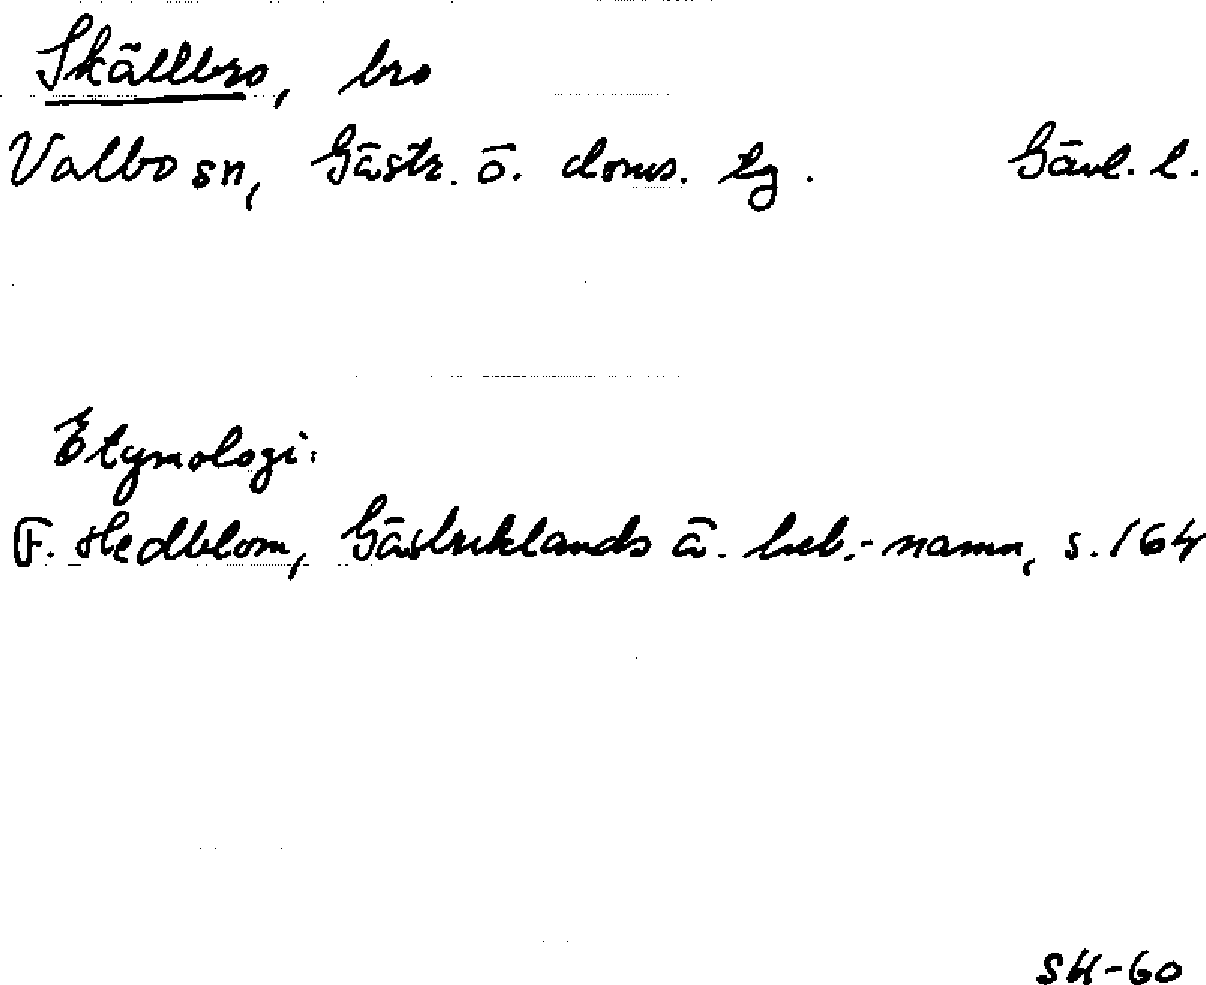 Skällbro, bro
Valbo sn, Gästr. ö. doms. tg. Gävl. l.
Etymologi:
F. Hedblom, Gästriklands ä. beb.-namn, s. 164
SH-60